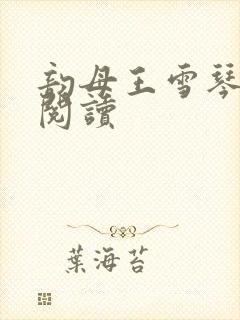 韵母王雪琴
閱讀
葉海苔